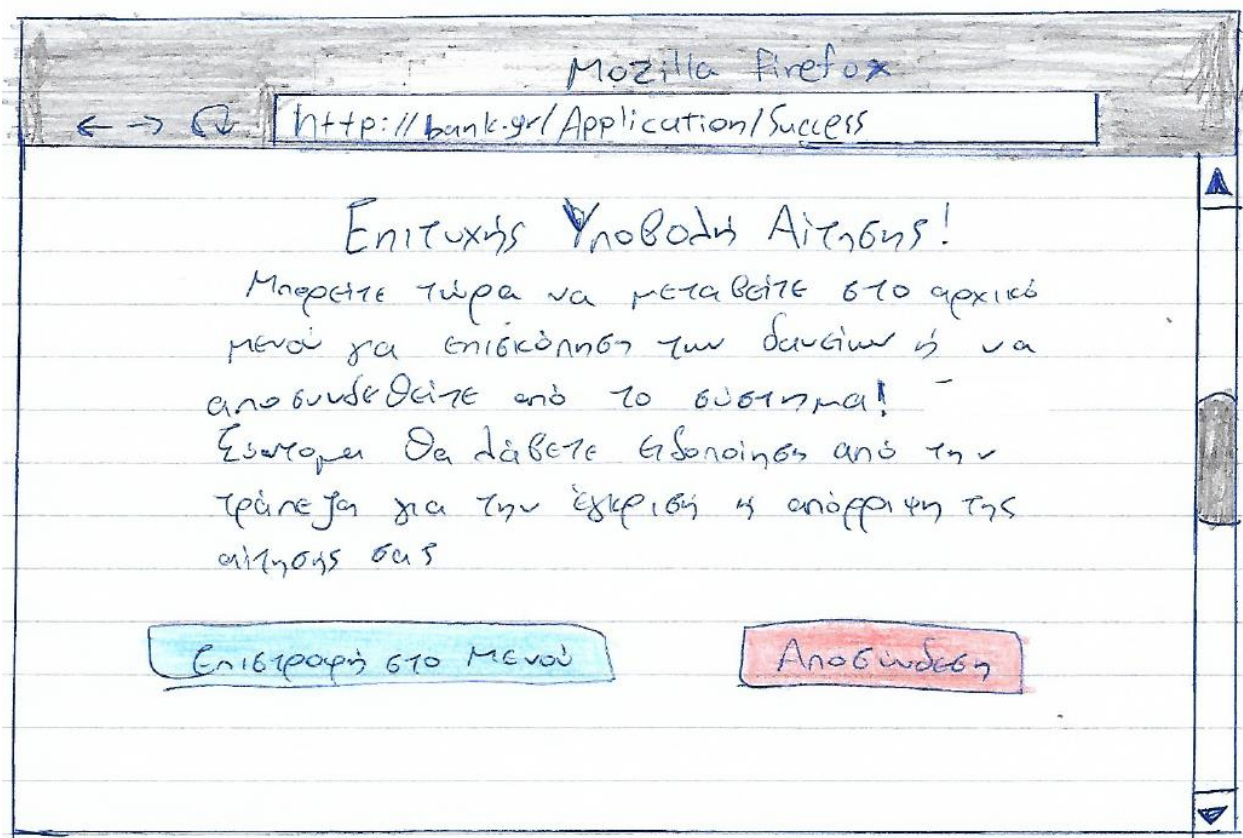 Mozilla Firefox
http://bank.gr/Application/Success
Επιτυχής Υποβολή Αίτησης!
Μπορείτε τώρα να μεταβείτε στο αρχικό
μενού για επισκόπηση των δανείων ή να
αποσυνδεθείτε από το σύστημα!
Σύντομα θα λάβετε ειδοποίηση από την
τράπεζα για την έγκριση ή απόρριψη της
αίτησής σας
Επιστροφή στο Μενού
Αποσύνδεση